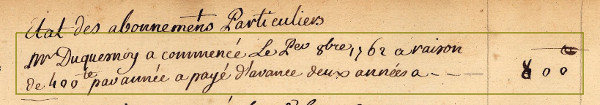 Etat des abonnements Particuliers
Mr Duquesnoy a commencé Le Per 8bre 1762 a raison
de 400tt par année a payé d'avance deux années a - - - 800